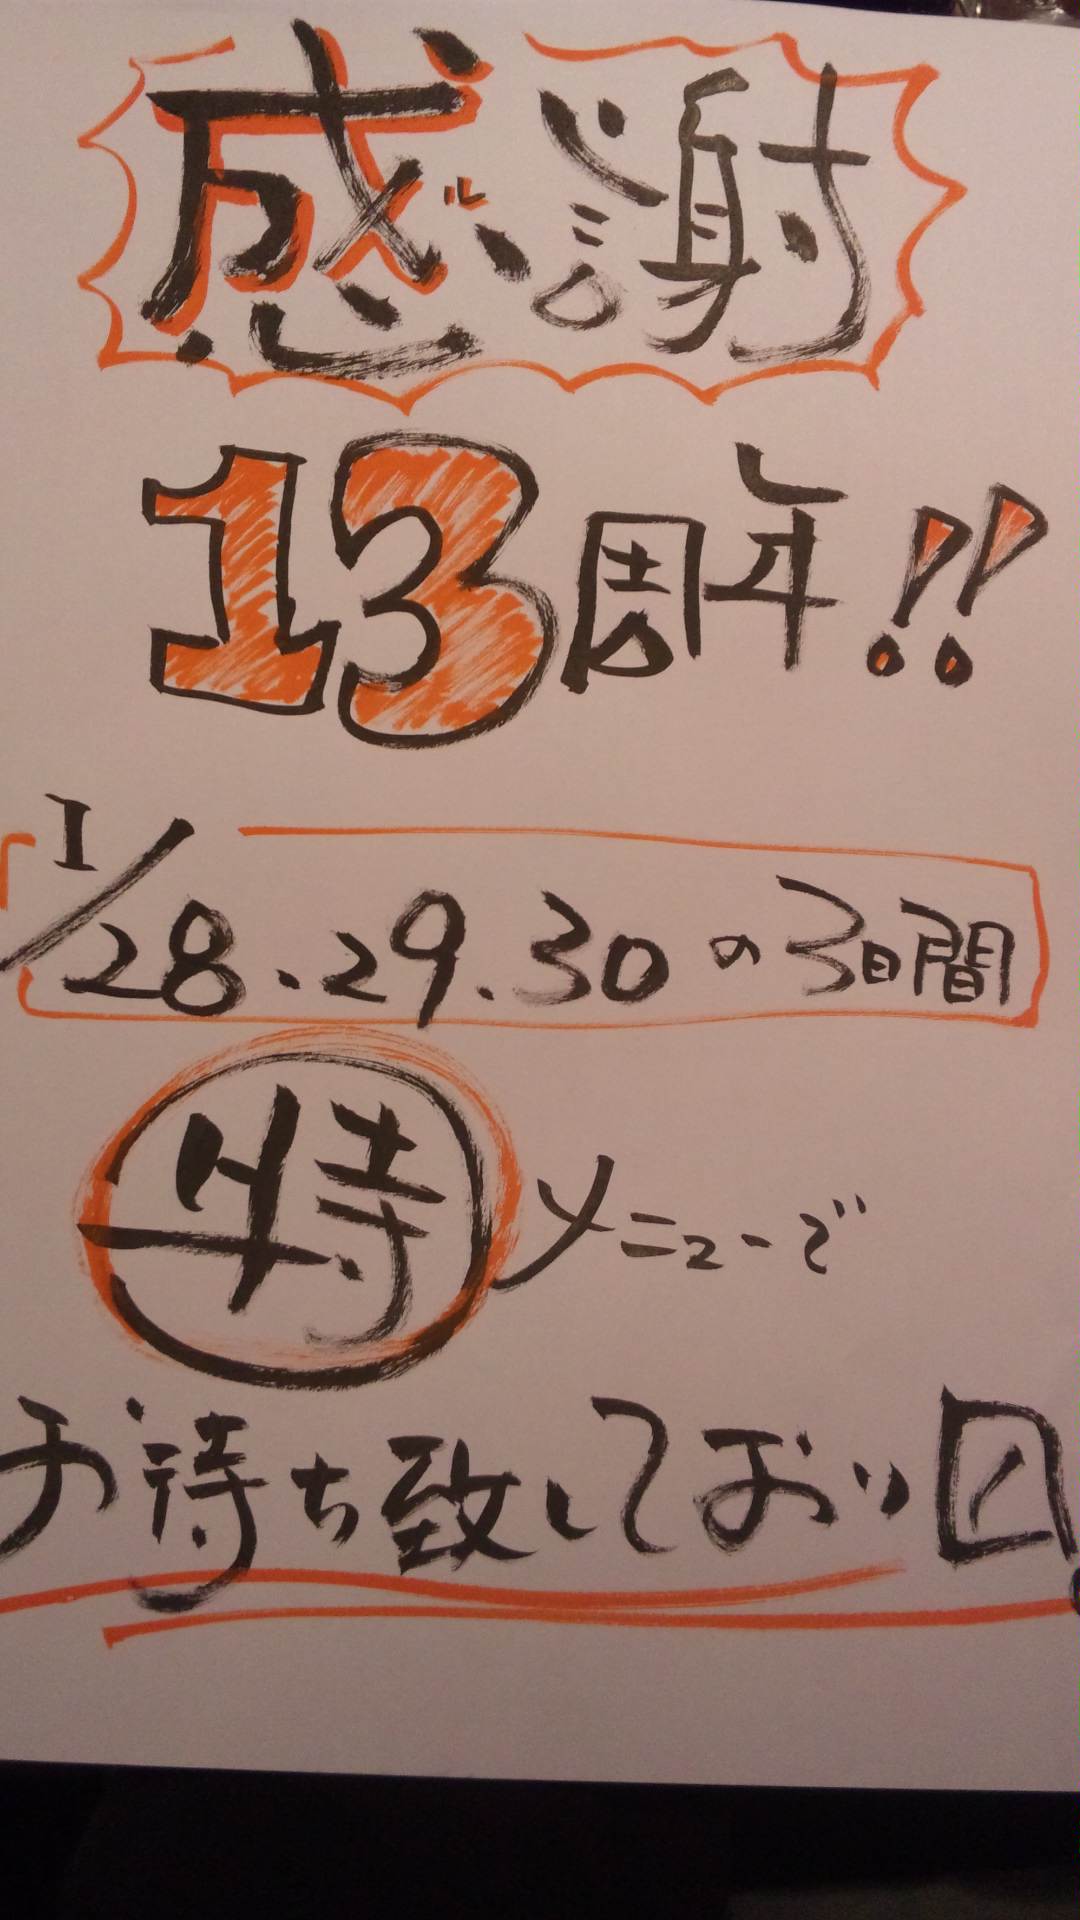 感謝
13周年!!
1/28.29.30の3日間
特メニューで
お待ち致しており〼